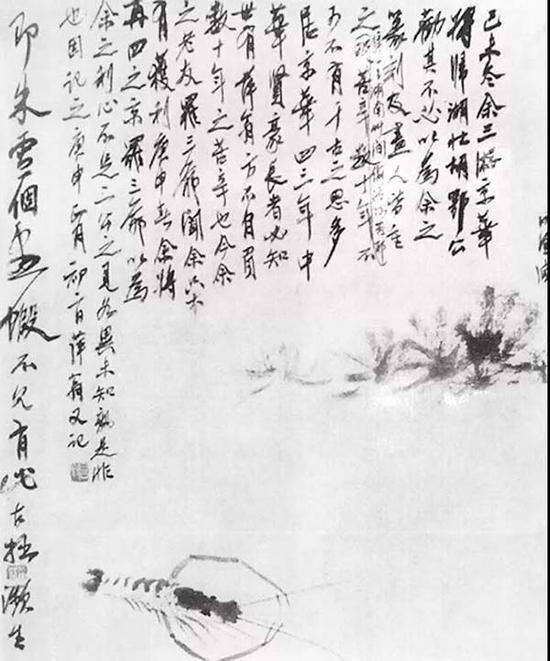 己未冬余三游京華
將歸湖北胡鄂公
勸其不必以為余之
篆刻及畫人皆重
之 苦辛數十年不
可不有千古之思多
居京華四三年中
華賢豪長者必知
世有萍翁方不自負
數十年之苦辛也 余
之老友羅三爺聞余
有獲利庚申春余將
再四之京羅三爺以為
余之利心不足二 之見各異未知孰是非
也因記之庚申正月初 日萍翁又記
即朱雪個畫蝦不見有此古拙 瀕生